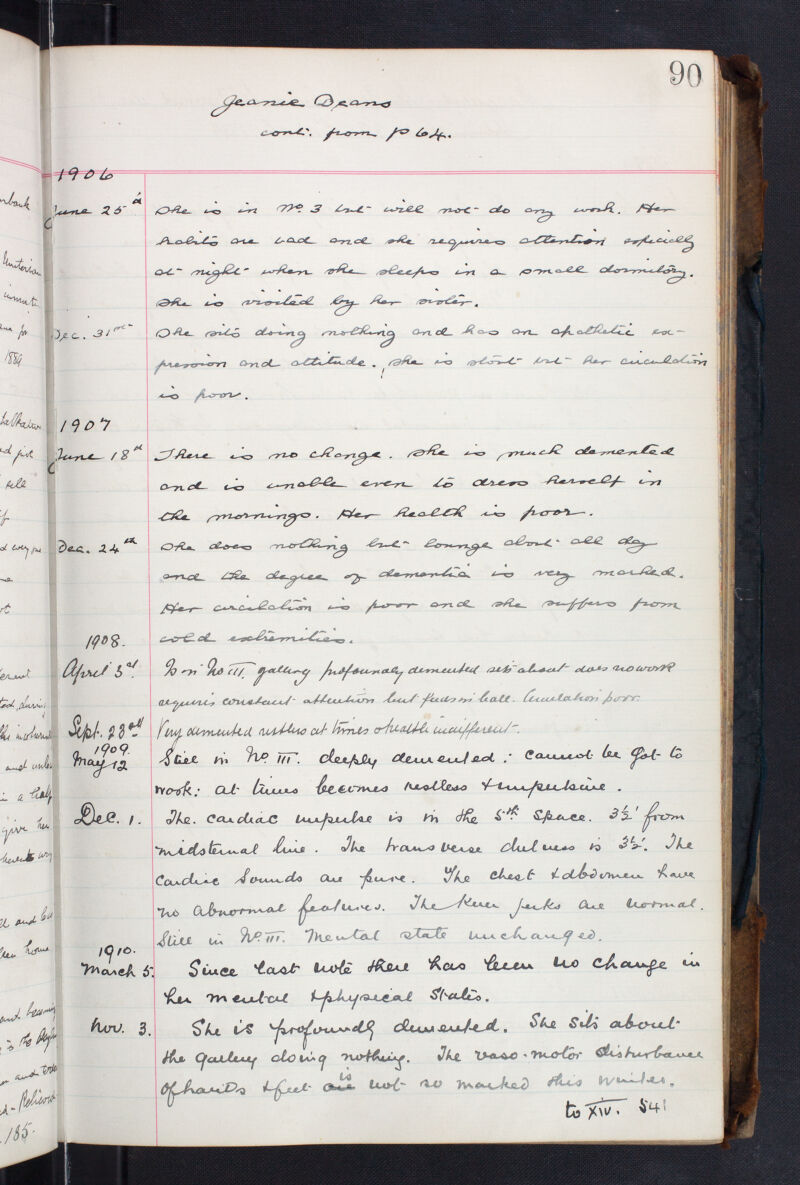 90
Jeanie Deans
cont. from p 64.
1906
June 25th She is in No. 3 but will not do any work. Her
habits are bad and she requires attention especially
at night when she sleeps in a small dormitory.
She is visited by her sister.
Dec. 31st She sits doing nothing and has an apathetic ex-
pression and attitude. She is stout but her circulation
is poor.
1907
June 18th There is no change. She is much demented
and is unable even to dress herself in
the mornings. Her health is poor.
Dec. 24th She does nothing but lounge about all day
and the degree of dementia is very marked.
Her circulation is poor and she suffers from
cold extremities.
1908.
April 3rd. Is in No III. gallery profoundly demented sits about does no work
requires constant attention but feeds in hall. Circulation poor.
Sept. 23rd Very demented restless at times & health indifferent.
1909.
May 12 Still in No III. deeply demented: cannot be got to
work: at times becomes restless & impulsive.
Dec. 1. The cardiac impulse is in the 5th Space. 3½' from
midsternal line. The transverse dulness is 3½'. The
Cardiac Sounds are pure. The chest & abdomen have
no abnormal features. The Knee jerks are normal.
Still in No. III. Mental state unchanged.
1910.
March 5. Since last note there has been no change in
her mental & physical States.
Nov. 3. She is profoundly demented. She sits about
the gallery doing nothing. The vaso-motor disturbance
of hands & feet is not so marked this winter.
to XIV. 541
1884
185.